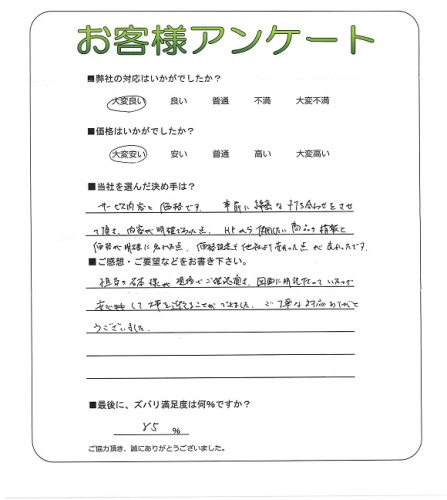 お客様アンケート
■弊社の対応はいかがでしたか？
大変良い 良い 普通 不満 大変不満
■価格はいかがでしたか？
大変安い 安い 普通 高い 大変高い
■当社を選んだ決め手は？
サービス内容と価格です。事前に綿密な打ち合わせをさせ
て頂き、内容が明確であった点、HPから
価格が明確に 点、価格設定も他社より安かった点が良かったです。
■ご感想・ご要望などをお書き下さい。
担当の 様が現場でご確認頂き、
安心して 事を進めることができました。ご丁寧な対応ありがと
うございました。
■最後に、ズバリ満足度は何%ですか？
85 %
ご協力頂き、誠にありがとうございました。